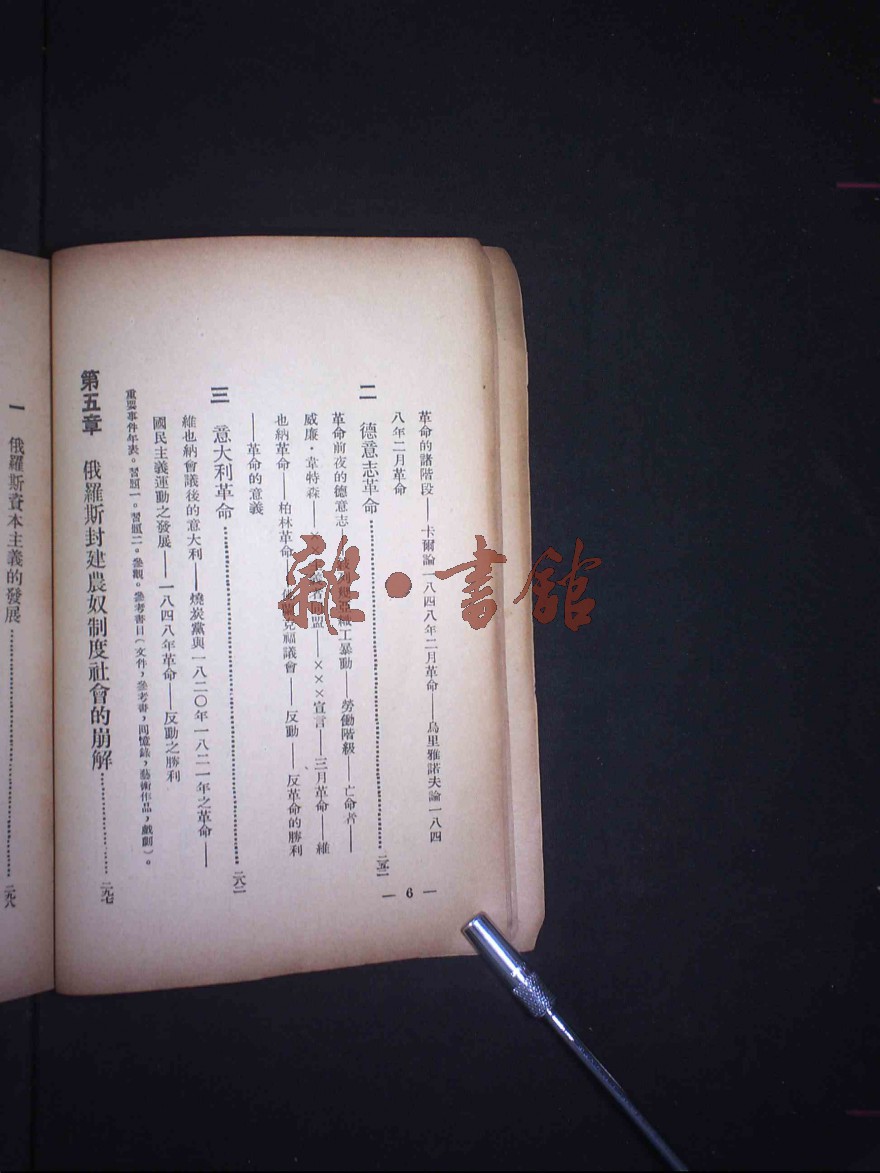 革命的諸階段——卡爾論一八四八年二月革命——烏里雅諾夫論一八四
八年二月革命
二 德意志革命
革命前夜的德意志——織工暴動——勞働階級——亡命者——
威廉・韋特森——同盟——×××宣言——三月革命——維
也納革命——柏林革命——福議會——反動——反革命的勝利
——革命的意義
三 意大利革命……二八二
維也納會議後的意大利——燒炭黨與一八二〇年一八二一年之革命——
國民主義運動之發展——一八四八年革命——反動之勝利
重要事件年表。習題一。習題二。參觀。參考書目（文件，參考書，回憶錄，藝術作品，戲劇）。
第五章 俄羅斯封建農奴制度社會的崩解……二九七
— 6 —
一 俄羅斯資本主義的發展……二九八
雜・書館